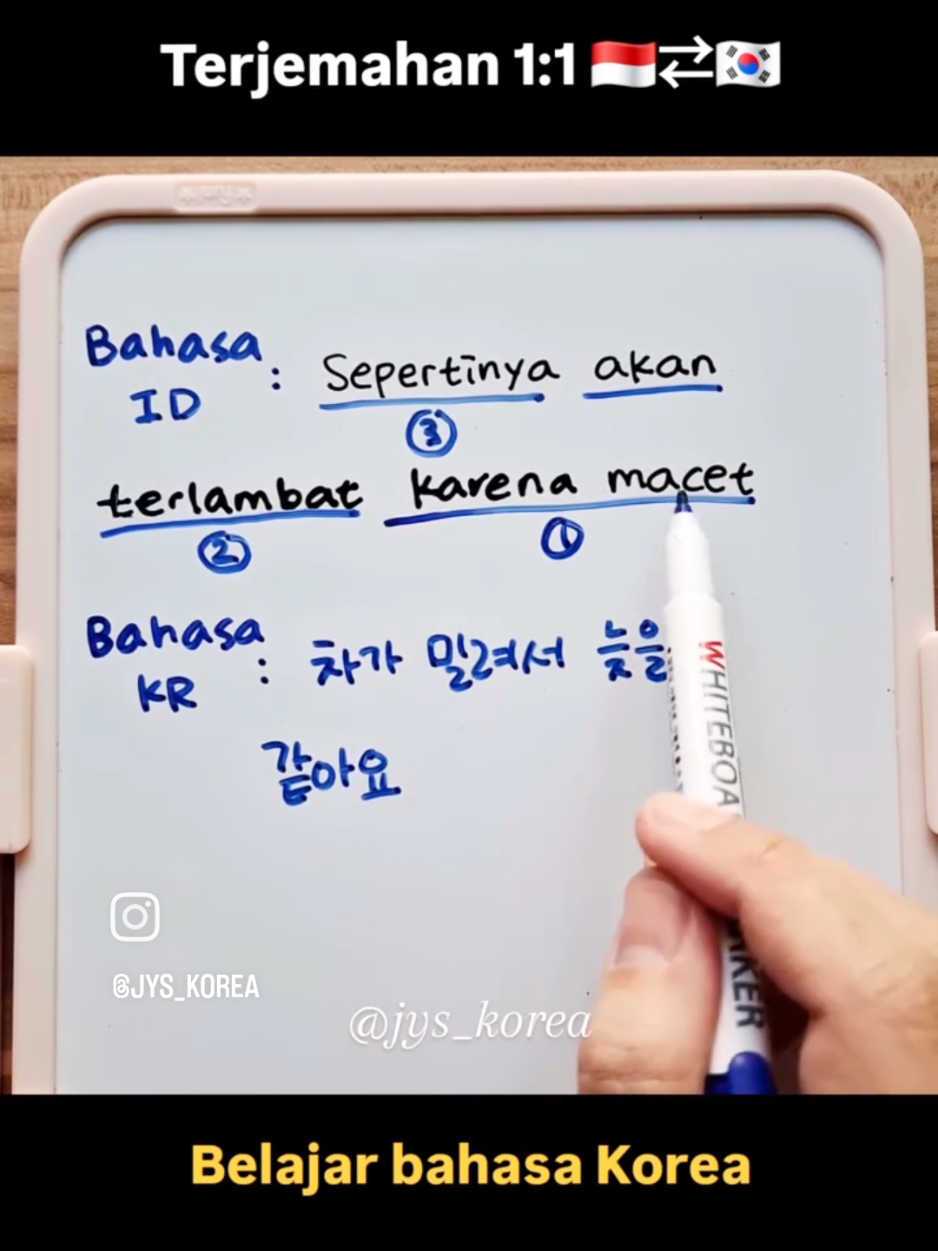 Terjemahan 1:1 🇮🇩⇄🇰🇷
Bahasa
ID : Sepertinya akan
③
terlambat karena macet
② ①
Bahasa
KR : 차가 밀려서
같아요
WHITEBOA
@JYS_KOREA
@jys_korea
Belajar bahasa Korea